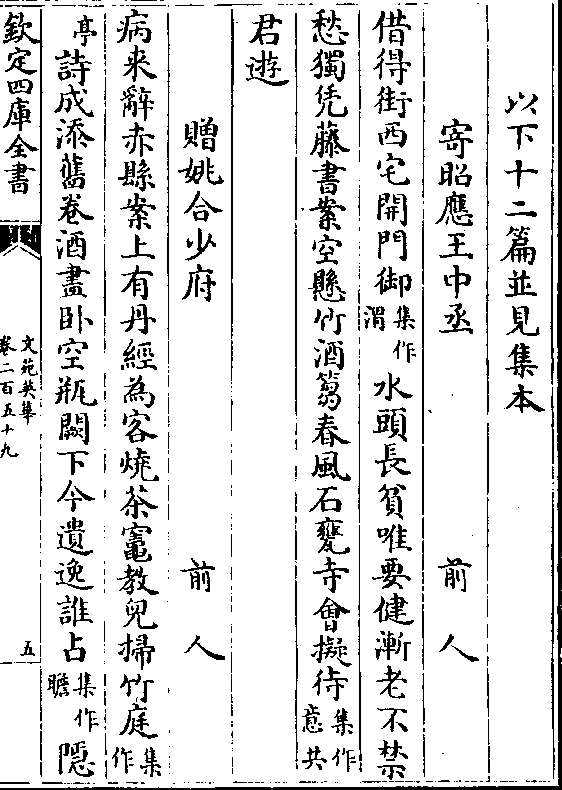 以下十二篇並見集本
寄昭應王中丞 前人
借得街西宅開門御集作渭水頭長貧唯要健漸老不禁
愁獨凭藤書案空懸竹酒篘春風石甕寺會擬待集作意共
君遊
贈姚合少府 前人
病来辭赤縣案上有丹經為客燒茶竈教兒掃竹庭集作
亭詩成添舊卷酒盡卧空瓶闕下今遺逸誰占集作瞻隱
欽定四庫全書
文苑英華
卷二百五十九
五